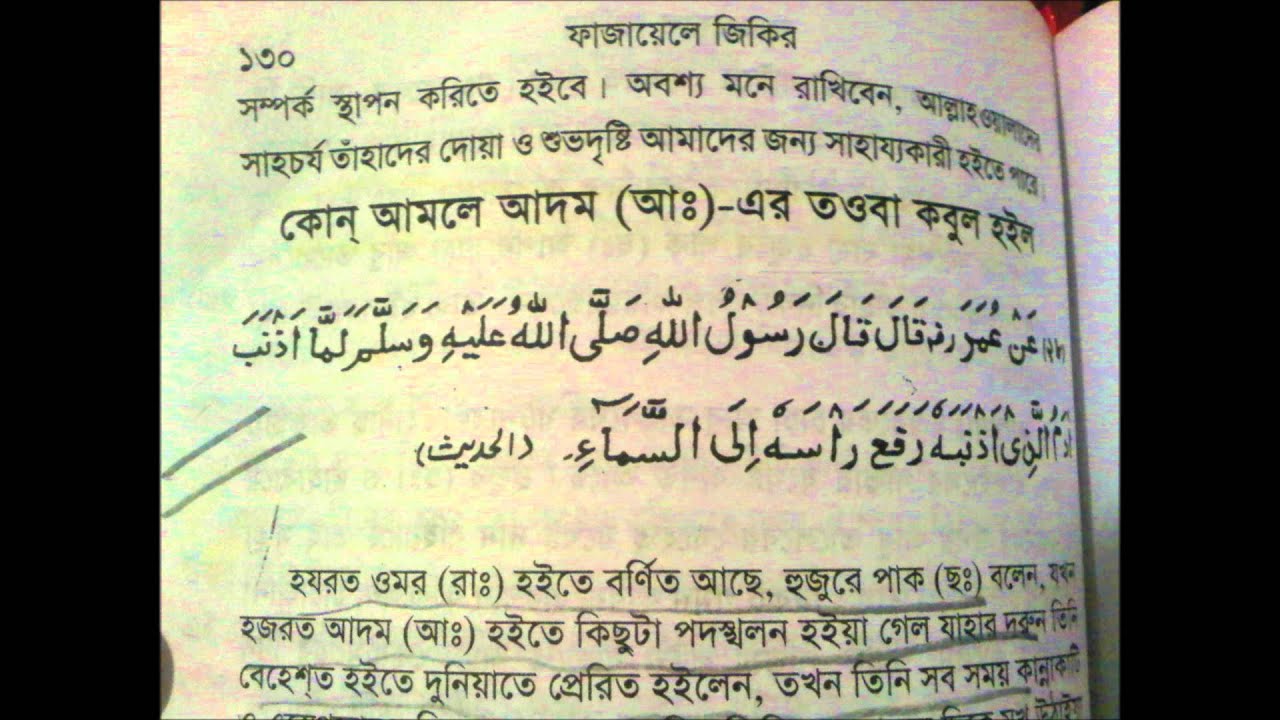 ১৩০
ফাজায়েলে জিকির
সম্পর্ক স্থাপন করিতে হইবে। অবশ্য মনে রাখিবেন, আল্লাহওয়ালাদের
সাহচর্য তাঁহাদের দোয়া ও শুভদৃষ্টি আমাদের জন্য সাহায্যকারী হইতে পারে।
কোন্ আমলে আদম (আঃ)-এর তওবা কবুল হইল
عَنْ عُمَرَ رض قَالَ قَالَ رَسُوْلُ اللّٰهِ صَلَّى اللّٰهُ عَلَيْهِ وَسَلَّمَ لَمَّا اَذْنَبَ
اٰدَمُ الَّذِىْ اَذْنَبَهٗ رَفَعَ رَاْسَهٗ اِلَى السَّمَآءِ۔ (الحديث)
হযরত ওমর (রাঃ) হইতে বর্ণিত আছে, হুজুরে পাক (ছঃ) বলেন, যখন
হজরত আদম (আঃ) হইতে কিছুটা পদস্খলন হইয়া গেল যাহার দরুন তিনি
বেহেশ্ত হইতে দুনিয়াতে প্রেরিত হইলেন, তখন তিনি সব সময় কান্নাকাটি